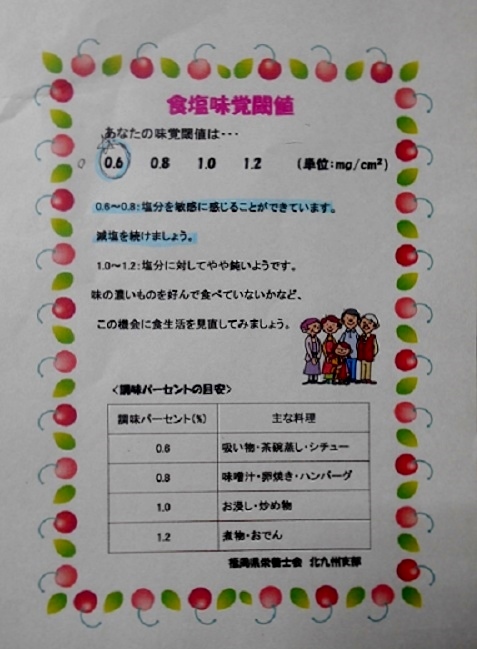 食塩味覚閾値
あなたの味覚閾値は・・・
0.6 0.8 1.0 1.2 (単位:mg/cm²)
0.6〜0.8:塩分を敏感に感じることができています。
減塩を続けましょう。
1.0〜1.2:塩分に対してやや鈍いようです。
味の濃いものを好んで食べていないかなど、
この機会に食生活を見直してみましょう。
<調味パーセントの目安>
調味パーセント(%) 主な料理
0.6 吸い物・茶碗蒸し・シチュー
0.8 味噌汁・卵焼き・ハンバーグ
1.0 お浸し・炒め物
1.2 煮物・おでん
福岡県栄養士会 北九州支部